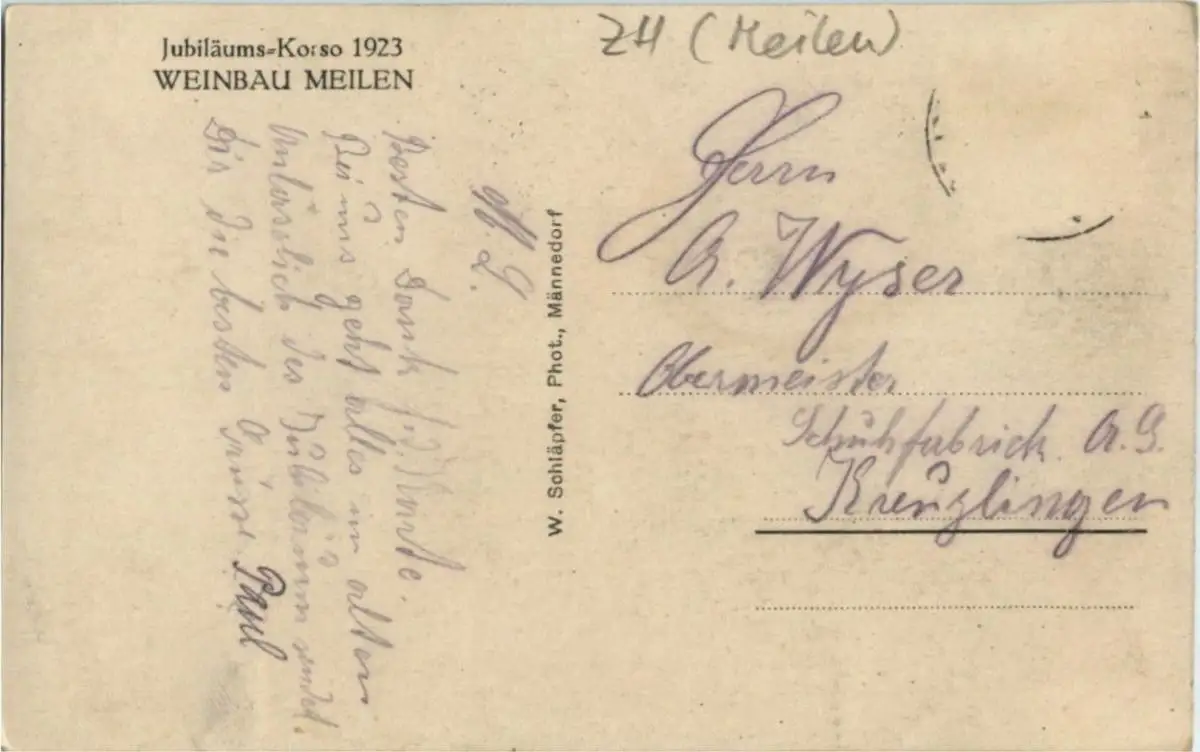 Jubiläums-Korso 1923
WEINBAU MEILEN
ZH (Meilen)
M. L.
Besten Dank f. d. Karte.
Bei uns geht alles im alten
Anlässlich des Jubiläums sendet
Dir die besten Grüsse Paul
W. Schläpfer, Phot., Männedorf
Herrn
A. Wyser
Obermeister
Schuhfabrick A.G.
Kreuzlingen